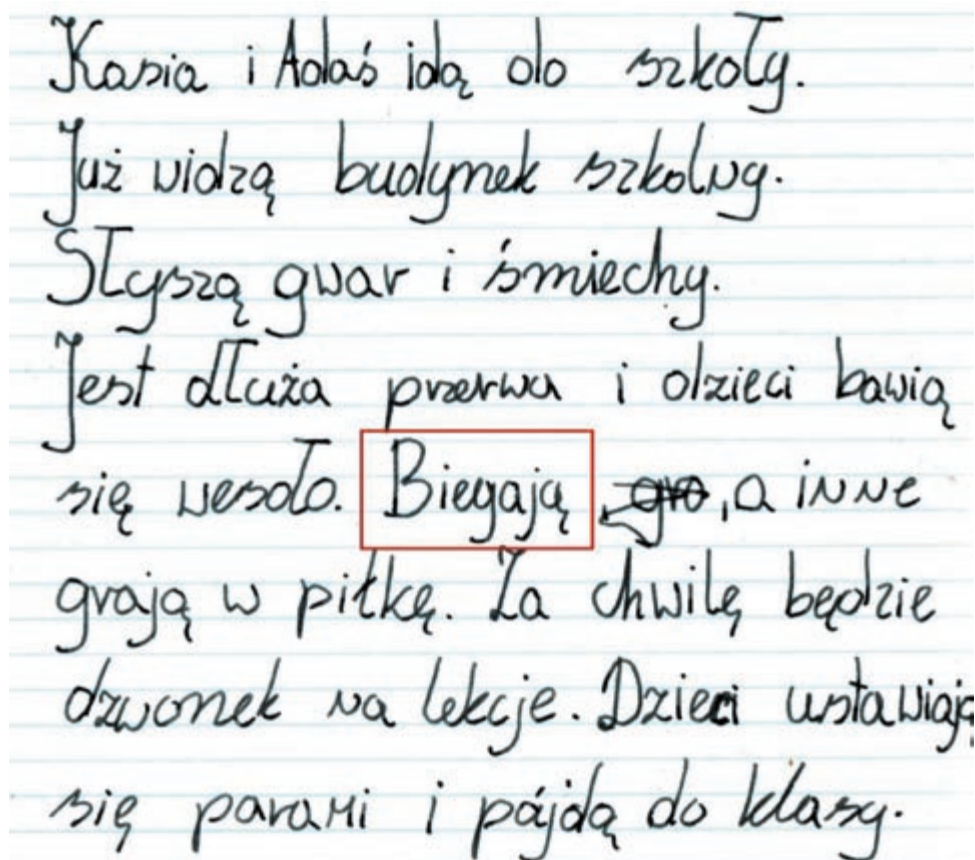 Kasia i Adaś idą do szkoły.
Już widzą budynek szkolny.
Słyszą gwar i śmiechy.
Jest dłuża przerwa i dzieci bawią
się wesoło. Biegają, gra, a inne
grają w piłkę. Za chwilę będzie
dzwonek na lekcje. Dzieci ustawiają
się parami i pójdą do klasy.